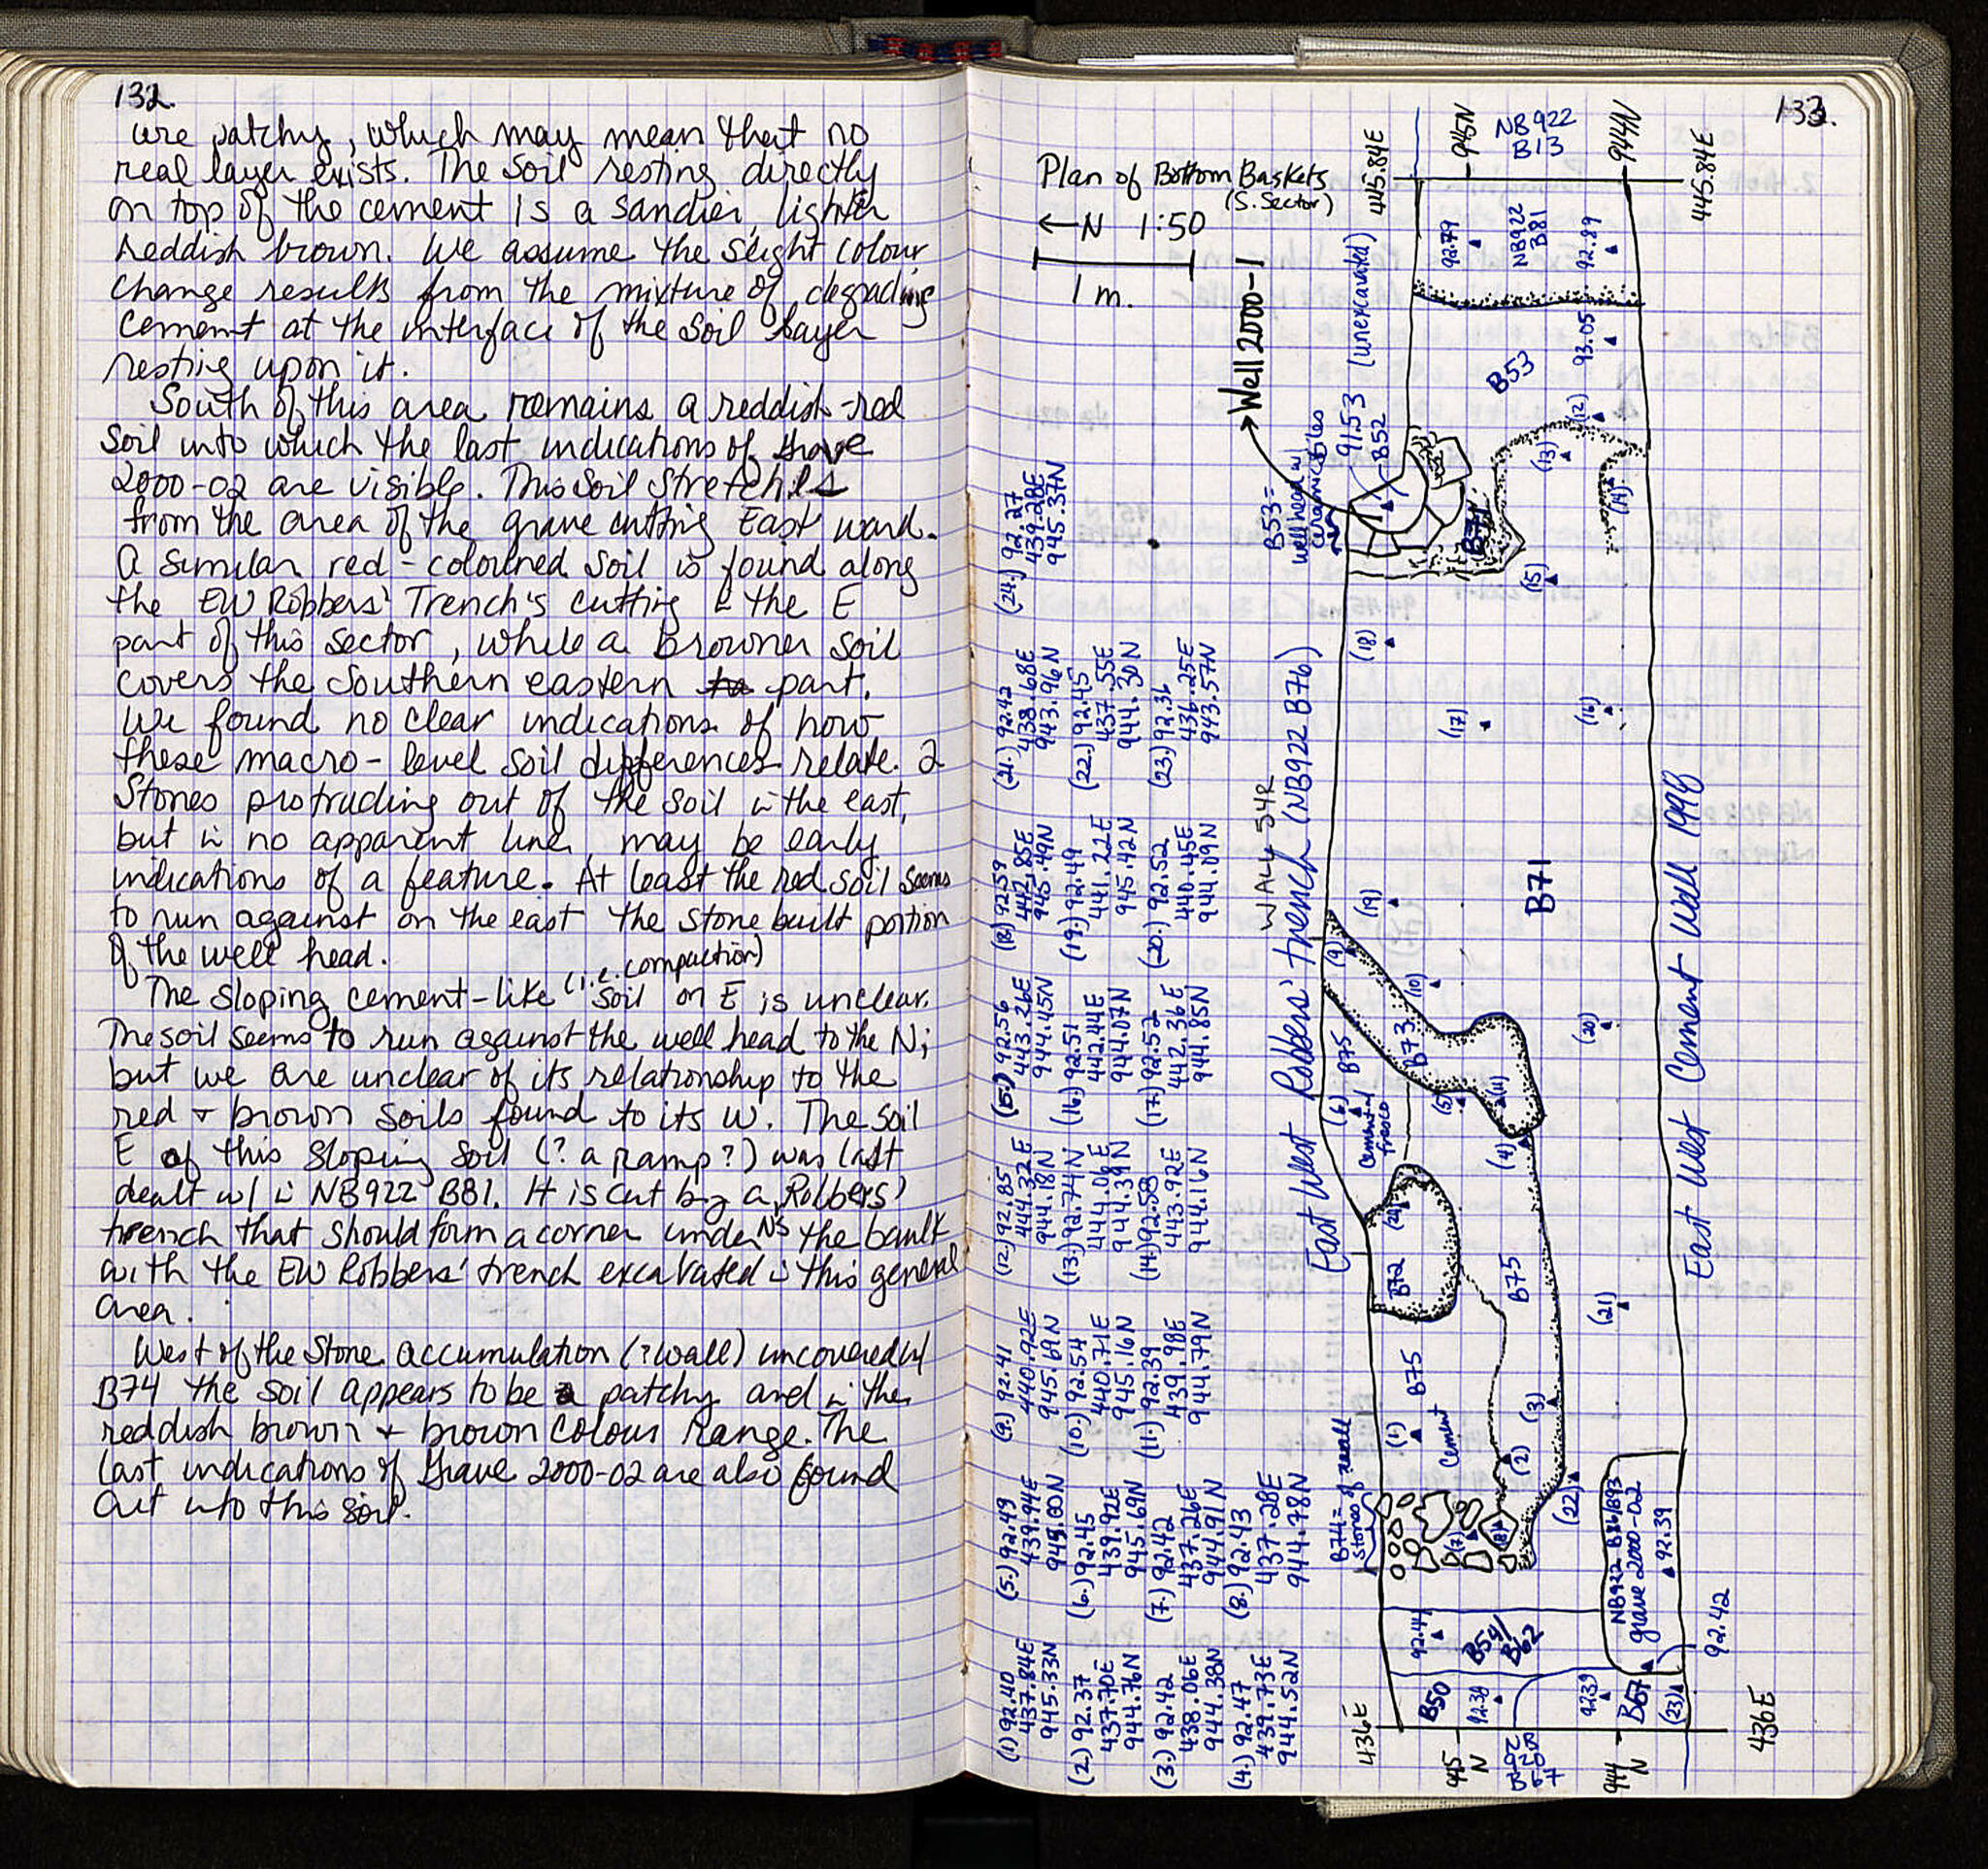 132.
are patchy, which may mean that no
real layer exists. The soil resting directly
on top of the cement is a sandier, lighter
reddish brown. We assume the slight colour
change results from the mixture of degrading
cement at the interface of the soil layer
resting upon it.
South of this area remains a reddish-red
soil into which the last indications of grave
2000-02 are visible. This soil stretches
from the area of the grave cutting Eastward.
A similar red-coloured soil is found along
the EW Robbers' Trench's cutting in the E
part of this sector, while a browner soil
covers the southern eastern part.
We found no clear indications of how
these macro-level soil differences relate. 2
Stones protruding out of the soil in the east,
but in no apparent line may be early
indications of a feature. At least the red soil seems
to run against on the east the stone built portion
of the well head.
The sloping cement-like (i.e. compaction) soil on E is unclear.
The soil seems to run against the well head to the N;
but we are unclear of its relationship to the
red + brown soils found to its W. The soil
E of this sloping soil (? a ramp?) was last
dealt w/ in NB922 B81. It is cut by a Robbers'
trench that should form a corner under NS the baulk
with the EW Robbers' trench excavated in this general
area.
West of the stone accumulation (?wall) uncovered w/
B74 the soil appears to be patchy and in the
reddish brown + brown colour range. The
last indications of Grave 2000-02 are also found
cut into this soil.
133.
Plan of Bottom Baskets
(S. Sector)
←N 1:50
1 m.
Well 2000-1
(1) 92.40
437.84E
945.33N
(2.) 92.37
437.70E
944.76N
(3.) 92.42
438.06E
944.38N
(4.) 92.47
439.73E
944.52N
(5.) 92.49
439.94E
945.00N
(6.) 92.45
439.92E
945.69N
(7.) 92.42
437.26E
944.91N
(8.) 92.43
437.28E
944.78N
(9.) 92.41
440.92E
945.69N
(10.) 92.54
440.71E
945.16N
(11.) 92.39
439.98E
944.79N
(12.) 92.85
444.32E
944.18N
(13.) 92.74
444.06E
944.39N
(14) 92.58
443.92E
944.16N
(15.) 92.56
443.26E
944.45N
(16.) 92.51
442.44E
944.07N
(17.) 92.52
442.36E
944.85N
(18) 92.59
442.85E
945.49N
(19.) 92.49
441.22E
945.42N
(20.) 92.52
440.45E
944.09N
(21.) 92.42
438.68E
943.96N
(22.) 92.45
437.55E
944.30N
(23.) 92.36
436.25E
943.57N
(24.) 92.27
439.28E
945.37N
WALL 54R
East West Robbers' trench (NB922 B76)
B53=
well head w/
ceramic tiles
91.53 (unexcavated)
B52
445.84E
945N
NB922
B13
944N
445.84E
92.79
NB922
B81
92.89
93.05
B53
(12)
(13)
(14)
B71
(15)
(18)
(17)
(16)
B71
(19)
(9)
(10)
(20)
B73
B75
(6)
Cement +
fresco
(5)
(11)
(4)
(24)
B72
B75
(21)
B75
(1)
Cement
(3)
(2)
(22)
B74=
Stones of wall
(7)
(8)
NB922 B86/B93
grave 2000-02
92.39
92.44
B54/
B62
B50
92.39
B67
(23)
92.42
436E
945
N
944
N
436E
East West Cement Wall 1998